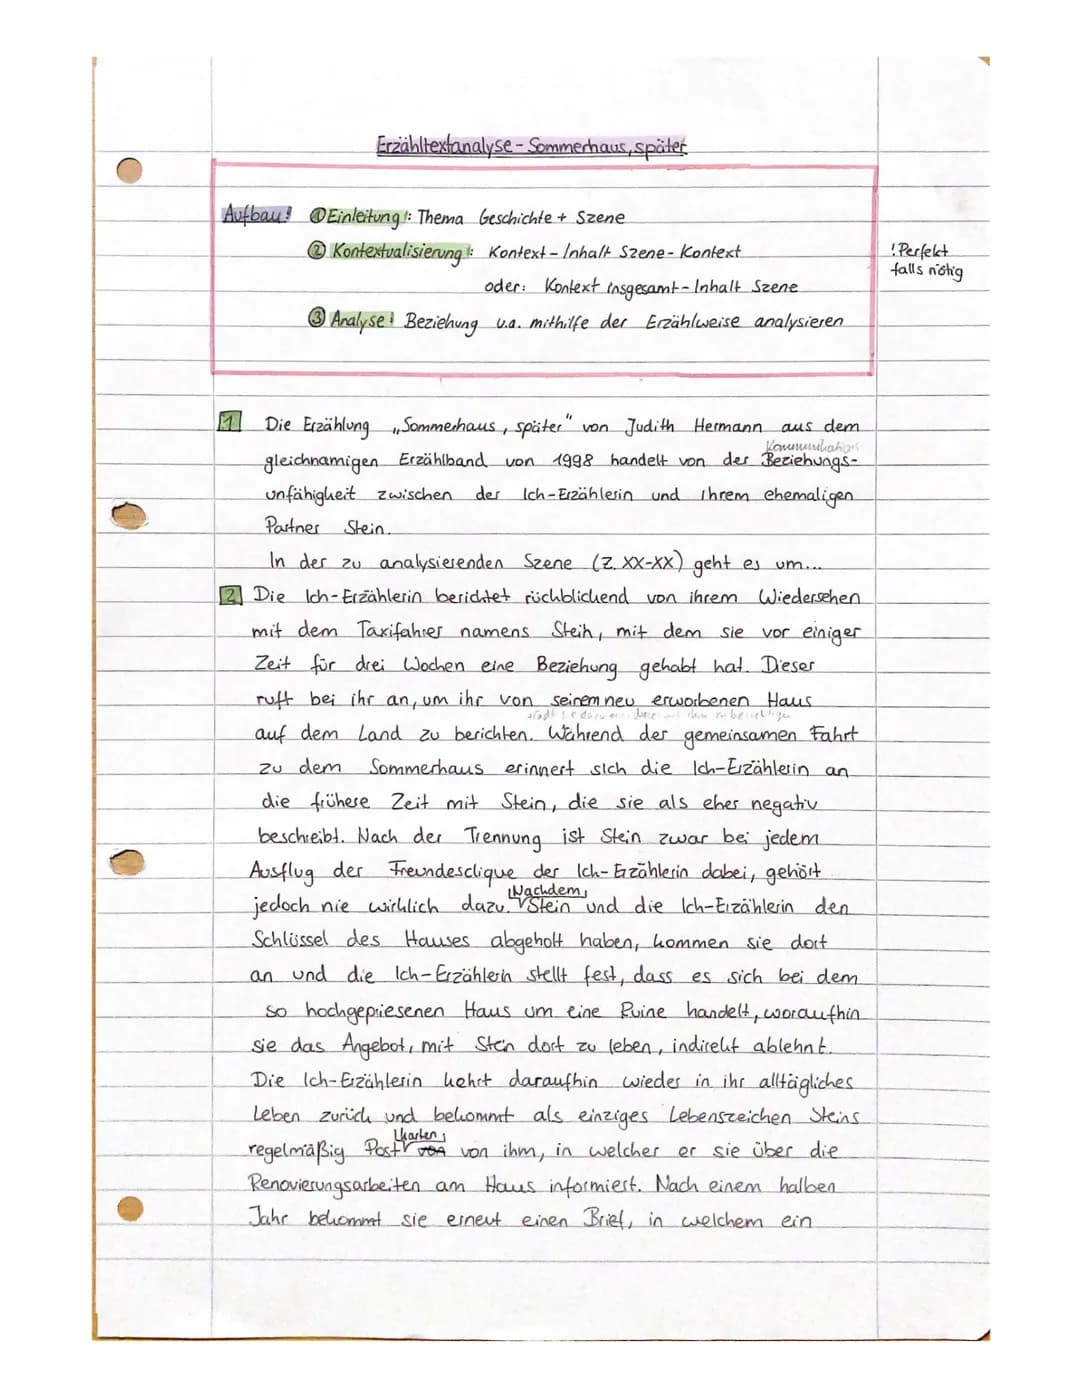 Erzähltextanalyse - Sommerhaus, später
Aufbau: ① Einleitung: Thema Geschichte + Szene
② Kontextualisierung: Kontext - Inhalt Szene - Kontext
! Perfekt
falls nötig
oder: Kontext insgesamt - Inhalt Szene
③ Analyse: Beziehung u.a. mithilfe der Erzählweise analysieren
1 Die Erzählung „Sommerhaus, später" von Judith Hermann aus dem
Kommunikations-
gleichnamigen Erzählband von 1998 handelt von der Beziehungs-
unfähigkeit zwischen der Ich-Erzählerin und ihrem ehemaligen
Partner Stein.
In der zu analysierenden Szene (Z. XX-XX) geht es um...
2 Die Ich-Erzählerin berichtet rückblickend von ihrem Wiedersehen
mit dem Taxifahrer namens Stein, mit dem sie vor einiger
Zeit für drei Wochen eine Beziehung gehabt hat. Dieser
ruft bei ihr an, um ihr von seinem neu erworbenen Haus
auf dem Land zu berichten. Während der gemeinsamen Fahrt
zu dem Sommerhaus erinnert sich die Ich-Erzählerin an
die frühere Zeit mit Stein, die sie als eher negativ
beschreibt. Nach der Trennung ist Stein zwar bei jedem
Ausflug der Freundesclique der Ich-Erzählerin dabei, gehört
Nachdem
jedoch nie wirklich dazu. Stein und die Ich-Erzählerin den
Schlüssel des Hauses abgeholt haben, kommen sie dort
an und die Ich-Erzählerin stellt fest, dass es sich bei dem
so hochgepriesenen Haus um eine Ruine handelt, woraufhin
sie das Angebot, mit Stein dort zu leben, indirekt ablehnt.
Die Ich-Erzählerin kehrt daraufhin wieder in ihr alltägliches
Leben zurück und bekommt als einziges Lebenszeichen Steins
karten
regelmäßig Post von von ihm, in welcher er sie über die
Renovierungsarbeiten am Haus informiert. Nach einem halben
Jahr bekommt sie erneut einen Brief, in welchem ein